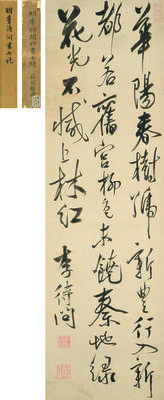 華陽春樹號新豐行入新
都若舊宮柳色未饒秦地綠
花光不減上林紅 李待問
明李待問書七絕